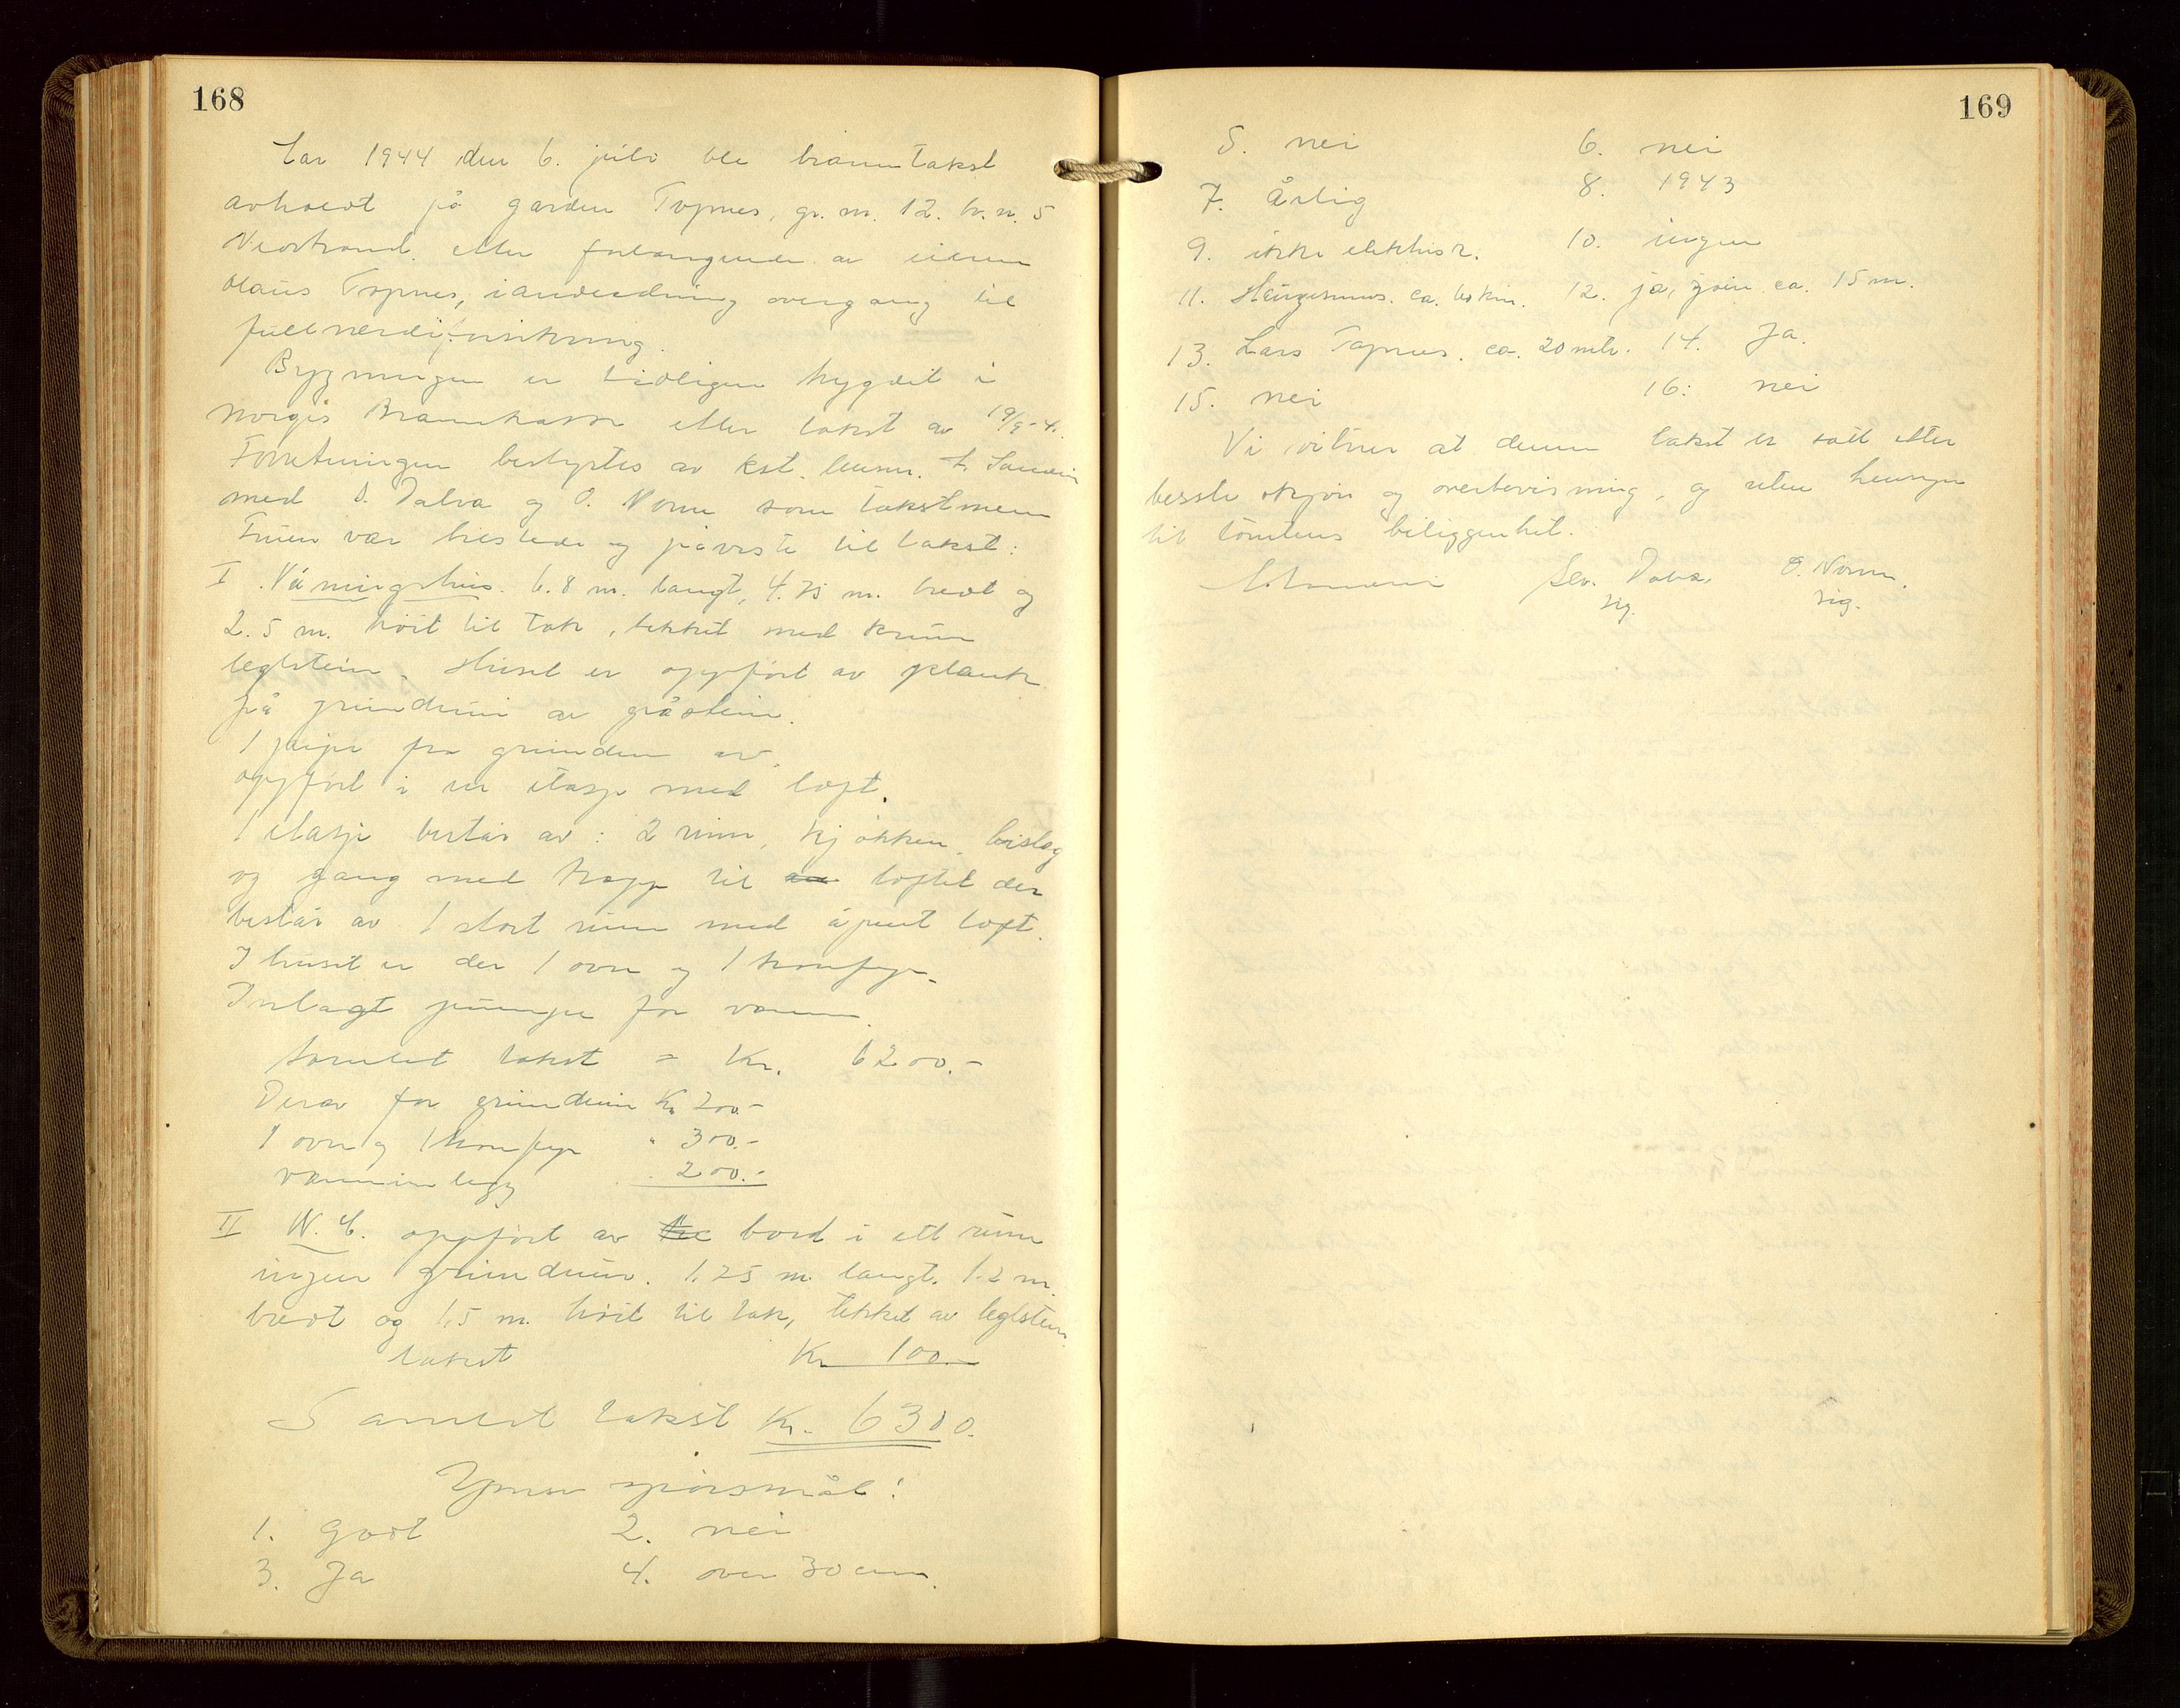 168
År 1944 den 6. juli ble branntakst
avholdt på garden Topnes, gr. nr. 12. br. nr. 5
Nedstrand, etter forlangende av eieren
Olaus Topnes, i anledning overgang til
fullverdiforsikring.
Bygningen er tidligere trygdet i
Norges Brannkasse etter takst av 19/9-
Forretningen bestyrtes av kst. lensm.
med S. Dalva og O. Norm som takstmenn
Fruen var tilstede og påviste til takst:
I Våningshus. 6.8 m. langt, 4.75 m. bredt og
2.5 m. høit til tak, tekket med krum
teglstein. Huset er oppført av plank
på grundmur av gråstein.
1 pipe fra grunden av.
oppført i en etasje med loft.
1 etasje består av: 2 rum, kjøkken, bislag
og gang med trapp til loftet der
består av 1 stort rum med åpent loft.
I huset er der 1 ovn og 1 komfyr.
Innlagt pumpe for vann.
Samlet takst = Kr. 6200.-
Derav for grundmur Kr 200.-
1 ovn og 1 komfyr " 300.-
vanninnlegg " 200.-
II W.C. oppført av bord i ett rum
ingen grundmur. 1.25 m. langt. 1.2 m.
bredt og 1,5 m. høit til tak, tekket av teglstein
takst Kr 100.-
Samlet takst Kr. 6300.
Ymse spørsmål:
1. Godt 2. nei
3. Ja 4. over 30 cm.
169
5. nei 6. nei
7. årlig 8. 1943
9. ikke elektrisk. 10. ingen
11. Haugesund. ca. km. 12. ja, sjøen ca. 15 m.
13. Lars Topnes. ca. 20 mtr. 14. Ja.
15. nei 16: nei
Vi vitner at denne takst er satt etter
beste skjøn og overbevisning, og uten hensyn
til tomtens beliggenhet.
Sev. Dalva. O. Norm.
sig. sig.